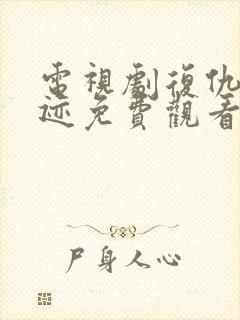 電視劇復仇
迹免費觀看
尸身人心